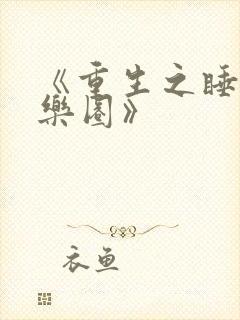 《重生之睡
樂園》
衣魚